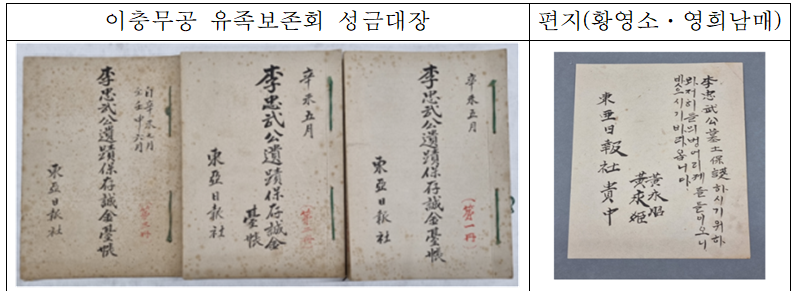 이충무공 유족보존회 성금대장
편지(황영소・영희남매)
李忠武公遺蹟保存誠金臺帳
第三冊
東亞日報社
辛未五月
李忠武公遺蹟保存誠金
臺帳
東亞日報社
辛未五月
李忠武公遺蹟保存誠金臺帳
(第一冊)
東亞日報社
李忠武公墓土保護하시기위하
와저히들의벙어리
밧으시기바라옵니다
黃永昭
黃永姬
東亞日報社 貴中